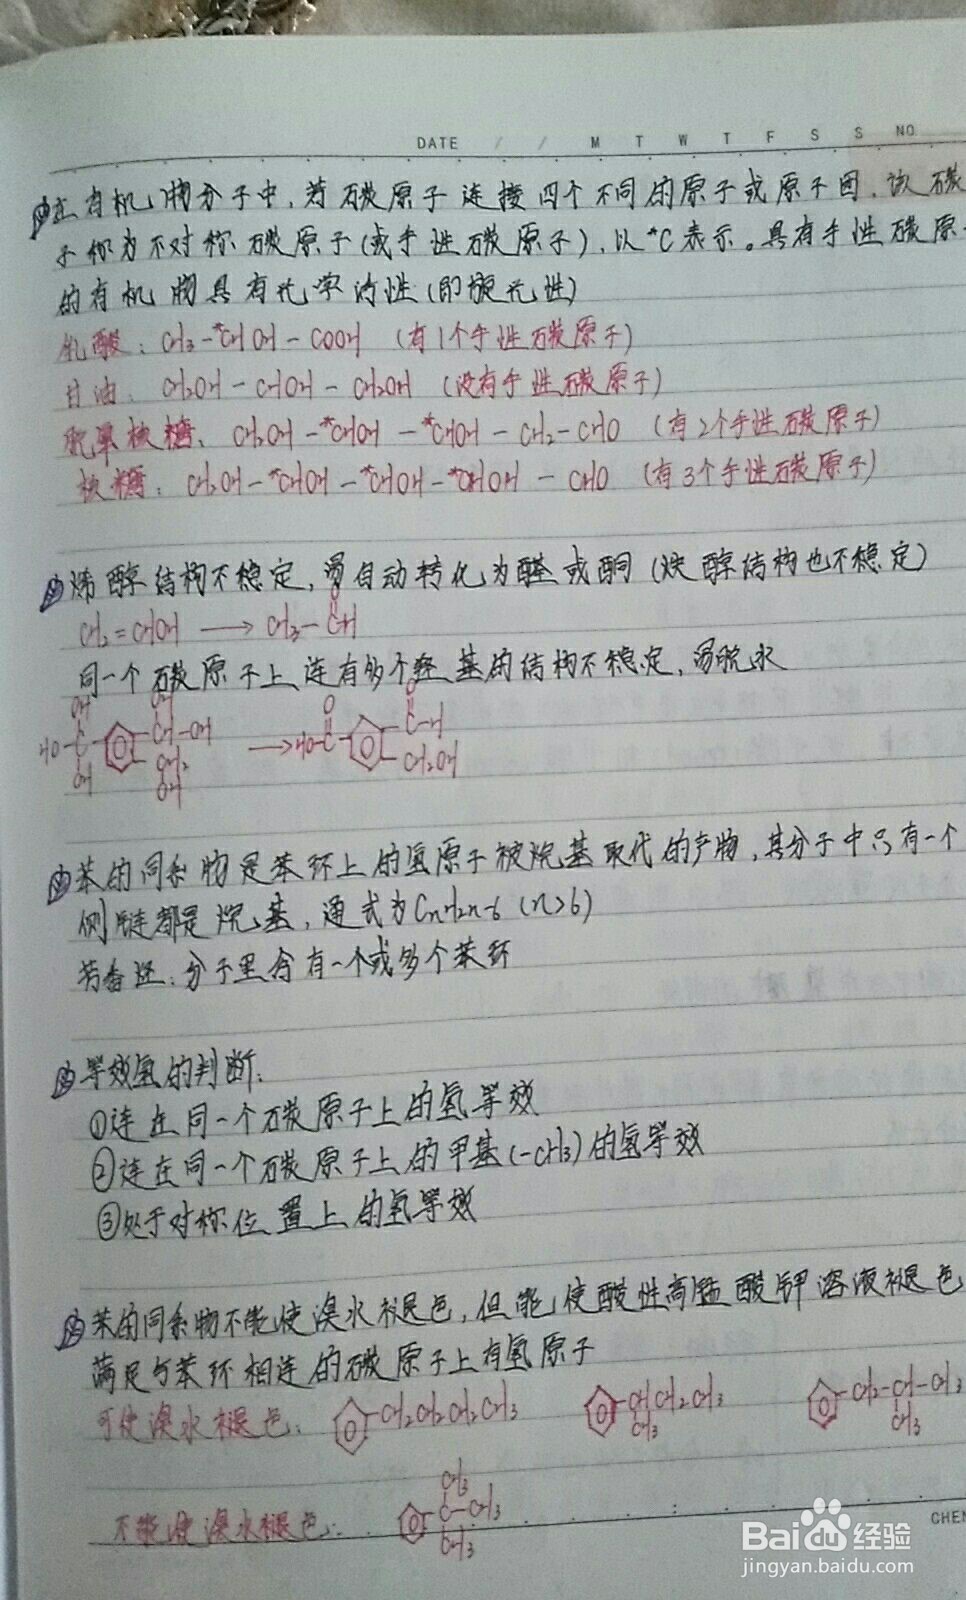 DATE / / M T W T F S S NO.
在有机物分子中,若碳原子连接四个不同的原子或原子团,该碳
子称为不对称碳原子(或手性碳原子),以*C表示。具有手性碳原
的有机物具有光学活性(即旋光性)
乳酸: CH3-*CHOH-COOH (有1个手性碳原子)
甘油: CH2OH-CHOH-CH2OH (没有手性碳原子)
脱氧核糖: CH2OH-*CHOH-*CHOH-CH2-CHO (有2个手性碳原子)
核糖: CH2OH-*CHOH-*CHOH-*CHOH-CHO (有3个手性碳原子)
烯醇结构不稳定,易自动转化为醛或酮(炔醇结构也不稳定)
O
CH2=CHOH → CH3-CH
同一个碳原子上连有多个羟基的结构不稳定,易脱水
OH OH O O
HO-C CH-OH → HO-C C-H
OH CH2 CH2OH
OH
苯的同系物是苯环上的氢原子被烷基取代的产物,其分子中只有一个
侧链都是烷基,通式为CnH2n-6(n>6)
芳香烃:分子里含有一个或多个苯环
等效氢的判断:
①连在同一个碳原子上的氢等效
②连在同一个碳原子上的甲基(-CH3)的氢等效
③处于对称位置上的氢等效
苯的同系物不能使溴水褪色,但能使酸性高锰酸钾溶液褪色
满足与苯环相连的碳原子上有氢原子
可使溴水褪色: -CH2CH2CH2CH3 CHCH2CH3 -CH2-CH-CH3
CH3 CH3
CH3
不能使溴水褪色: C-CH3
CH3
CHEN
Baidu经验
jingyan.baidu.com